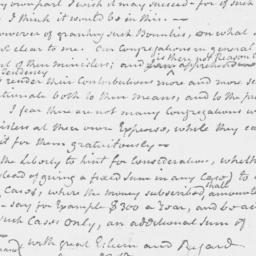 my own part I wish it may succeed - for of such
I think it would be in this: -
however of granting such Bounties, on what
clear to me. Our Congregations in general
is there not Reason to
of their ministers; and
tendency
render their Contributions more and more
both to their means, and to the
I fear there are not many Congregations
at their own Expense, while they
it for them gratuitously -
the Liberty to hint for Consideration, whether
instead of giving a fixed Sum in any Case) to
Cases, where the money subscribed shall amount
- say for Example $300 a Year, and be
such Cases only, an additional Sum of
with great Esteem and Regard